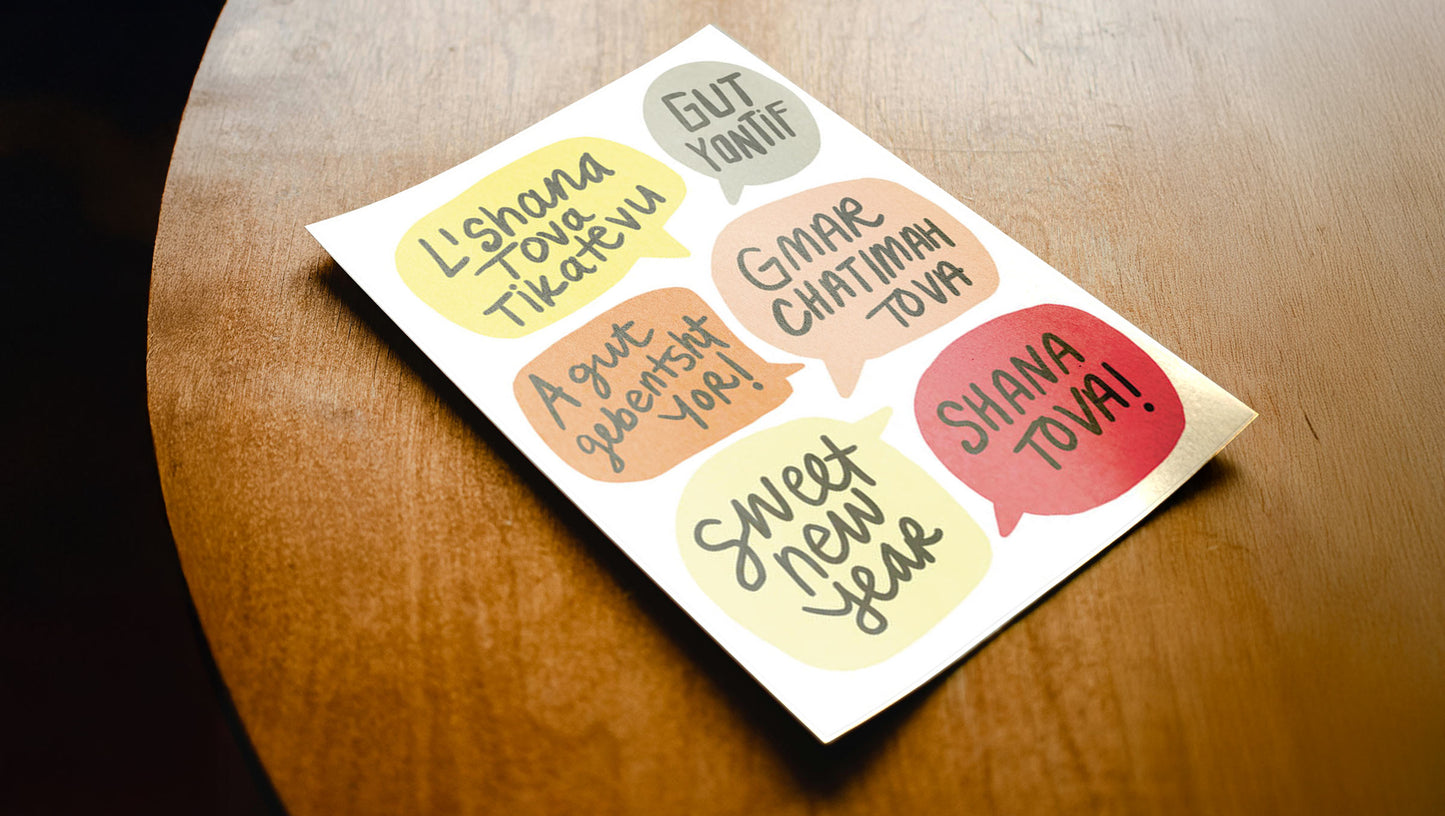 GUT
YONTIF
L'Shana
Tova
Tikatevu
GMAR
CHATIMAH
TOVA
A gut
gebentsht
YOR!
SHANA
TOVA!
Sweet
new
year